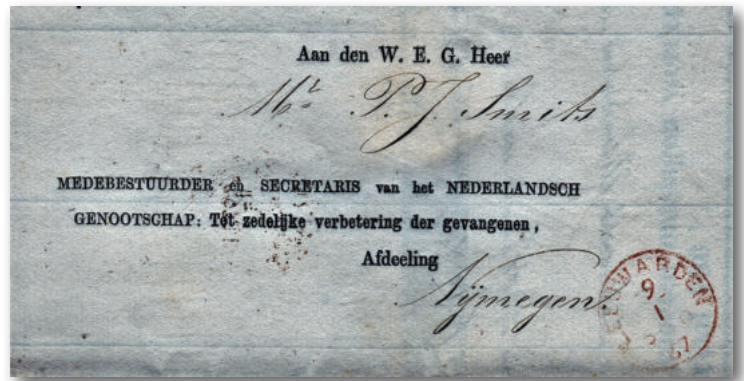 Aan den W. E. G. Heer
Mr. P. J. Smits
MEDEBESTUURDER en SECRETARIS van het NEDERLANDSCH
GENOOTSCHAP: Tot zedelijke verbetering der gevangenen,
Afdeeling
Nijmegen.
LEEUWARDEN
9
1